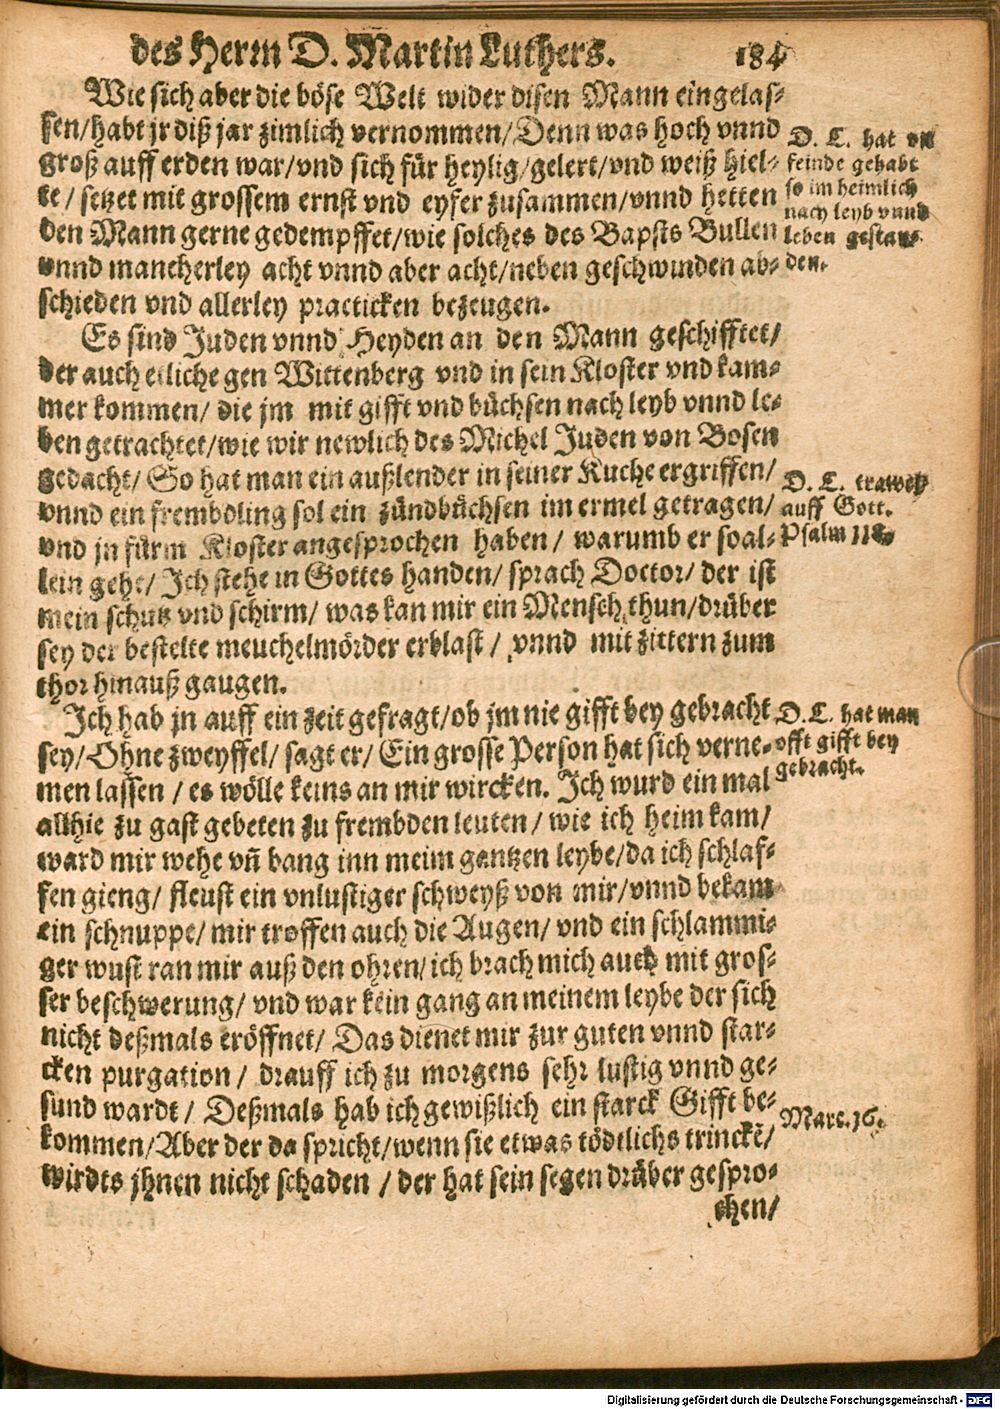 des Herrn D. Martin Luthers. 184
Wie sich aber die böse Welt wider disen Mann eingelas-
sen/habt jr diß jar zimlich vernommen/Denn was hoch vnnd
groß auff erden war/vnd sich für heylig/gelert/vnd weiß hiel-
te/ setzet mit grossem ernst vnd eyfer zusammen/vnnd hetten
den Mann gerne gedempffet/wie solches des Bapsts Bullen
vnnd mancherley acht vnnd aber acht/neben geschwinden ab-
schieden vnd allerley practicken bezeugen.
D. L. hat vil
feinde gehabt
so im heimlich
nach leyb vnnd
leben gestan-
den.
Es sind Juden vnnd Heyden an den Mann geschifftet/
der auch etliche gen Wittenberg vnd in sein Kloster vnd kam-
mer kommen/ die jm mit gifft vnd büchsen nach leyb vnnd le-
ben getrachtet/wie wir newlich des Michel Juden von Bosen
gedacht/ So hat man ein außlender in seiner Kuche ergriffen/
vnnd ein frembdling sol ein zündbüchsen im ermel getragen/
vnd jn fürm Kloster angesprochen haben/ warumb er so al-
lein gehe/ Ich stehe in Gottes handen/ sprach Doctor/ der ist
mein schutz vnd schirm/ was kan mir ein Mensch thun/drüber
sey der bestelte meuchelmörder erblast/ vnnd mit zittern zum
thor hinauß gangen.
D. L. trawet
auff Gott.
Psalm 118.
Ich hab jn auff ein zeit gefragt/ob jm nie gifft bey gebracht
sey/Ohne zweyffel/ sagt er/ Ein grosse Person hat sich verne-
men lassen/ es wölle keins an mir wircken. Ich wurd ein mal
allhie zu gast gebeten zu frembden leuten/ wie ich heim kam/
ward mir wehe vñ bang inn meim gantzen leybe/da ich schlaf-
fen gieng/ fleust ein vnlustiger schweyß von mir/vnnd bekam
ein schnuppe/ mir troffen auch die Augen/ vnd ein schlammi-
ger wust ran mir auß den ohren/ich brach mich auch mit gros-
ser beschwerung/ vnd war kein gang an meinem leybe der sich
nicht deßmals eröffnet/ Das dienet mir zur guten vnnd star-
cken purgation/ drauff ich zu morgens sehr lustig vnnd ge-
sund wardt/ Deßmals hab ich gewißlich ein starck Gifft be-
kommen/Aber der da spricht/wenn sie etwas tödtlichs trinckẽ/
wirdts jhnen nicht schaden/ der hat sein segen drüber gespro-
chen/
D. L. hat man
offt gifft bey
gebracht.
Marc. 16.
Digitalisierung gefördert durch die Deutsche Forschungsgemeinschaft - DFG